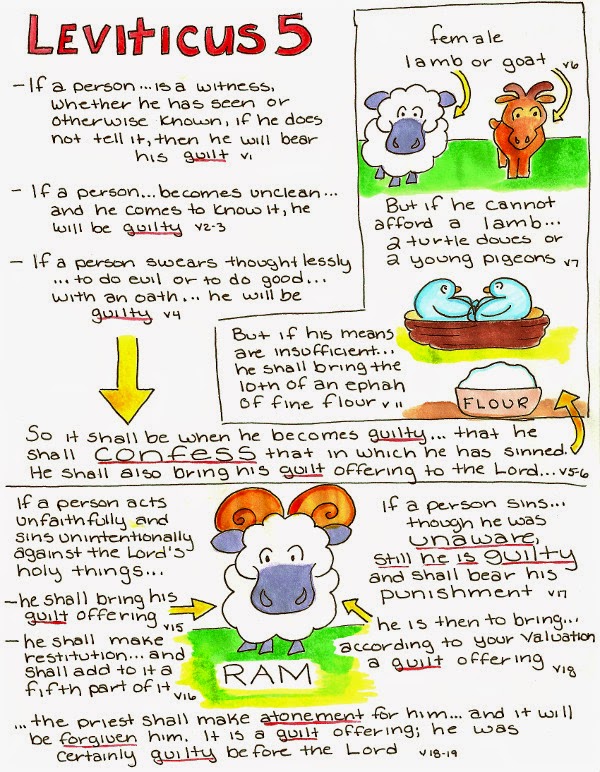 LEVITICUS 5
- If a person...is a witness,
whether he has seen or
otherwise known, if he does
not tell it, then he will bear
his guilt v1
- If a person...becomes unclean...
and he comes to know it, he
will be guilty v2-3
- If a person swears thoughtlessly
...to do evil or to do good...
with an oath... he will be
guilty v4
female
lamb or goat v6
But if he cannot
afford a lamb...
2 turtle doves or
2 young pigeons v7
But if his means
are insufficient...
he shall bring the
10th of an ephah
of fine flour v11
FLOUR
So it shall be when he becomes guilty... that he
shall confess that in which he has sinned.
He shall also bring his guilt offering to the Lord... v5-6
If a person acts
unfaithfully and
sins unintentionally
against the Lord's
holy things...
- he shall bring his
guilt offering
v15
- he shall make
restitution... and
shall add to it a
fifth part of it v16
RAM
If a person sins...
though he was
unaware,
still he is guilty
and shall bear his
punishment v17
he is then to bring...
according to your valuation
a guilt offering v18
...the priest shall make atonement for him... and it will
be forgiven him. It is a guilt offering; he was
certainly guilty before the Lord v18-19